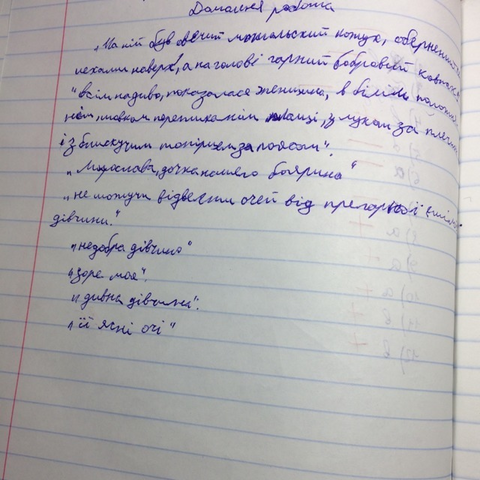 Домашня робота
„На ній був овечий могольський кожух, обернений
мехами наверх, а на голові гарний бобровий ковпак"
"всім на диво, показалася женщина, в білім полот
нім, шовком перетиканім плащі, з луком за плечима
і з блискучим топірцем за поясом".
„Мирослава, дочка нашего боярина"
„не можучи відвести очей від прегарної і милої
дівчини."
„недобра дівчино"
„зоре моя".
„дивна дівчина".
„її ясні очі"
12) а
11) в
10) а
9) а